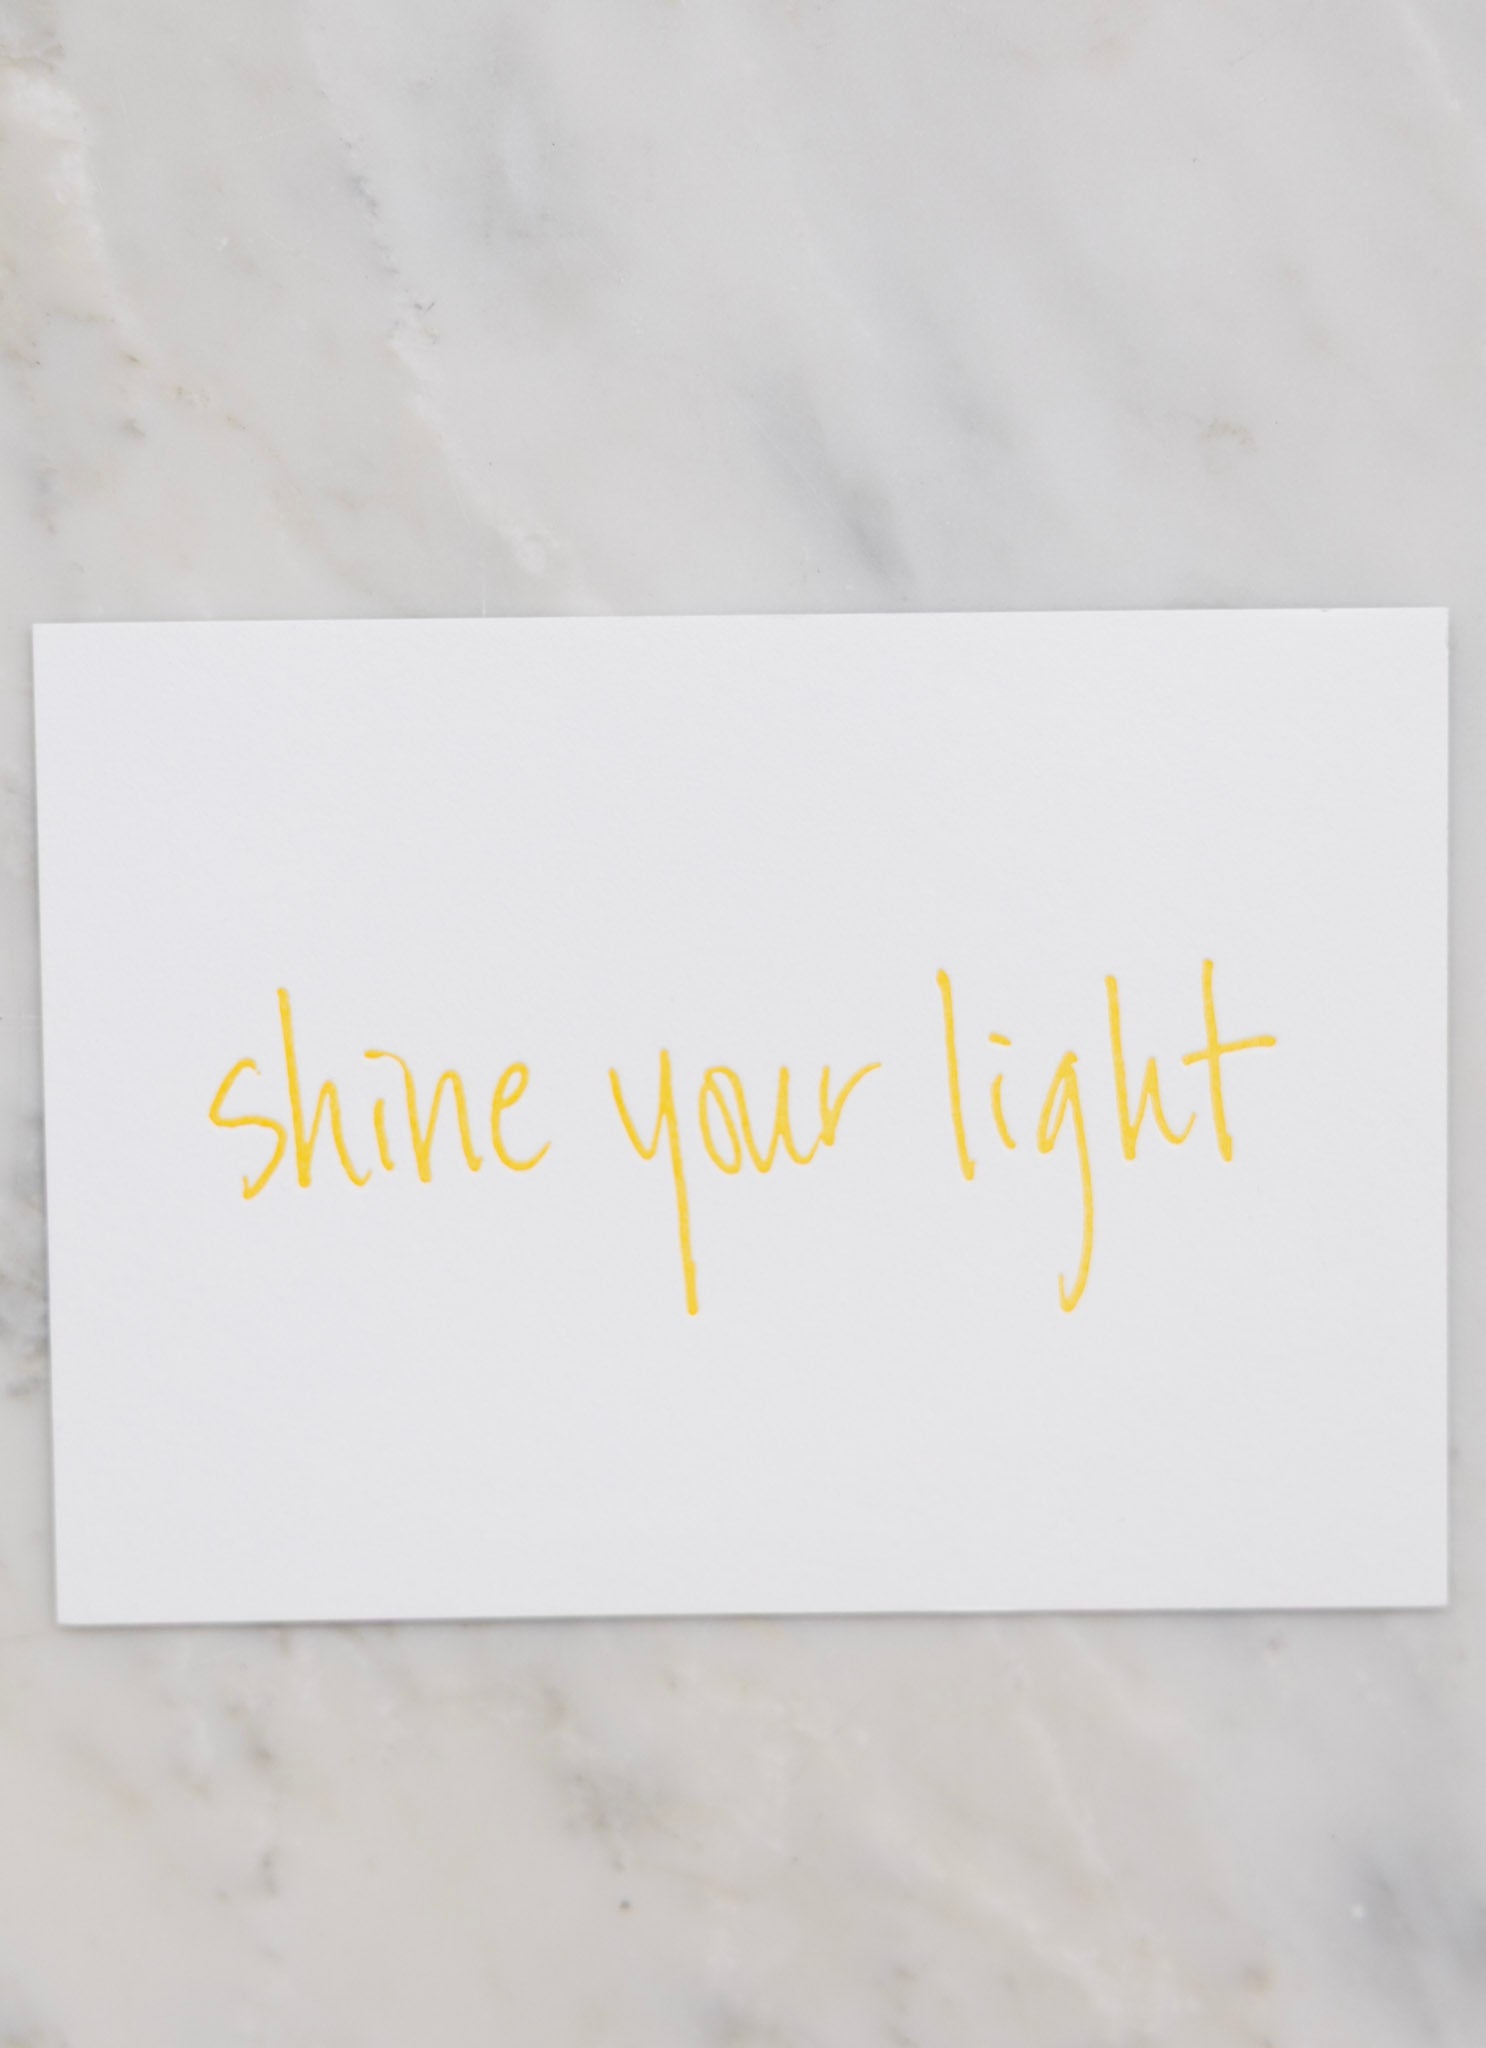 shine your light